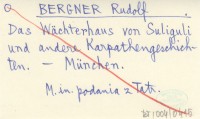 BERGNER Rudolf.
Das Wächterhaus von Suliguli
und andere Karpathengeschich-
ten. — München.
M.in. podania z Tatr.